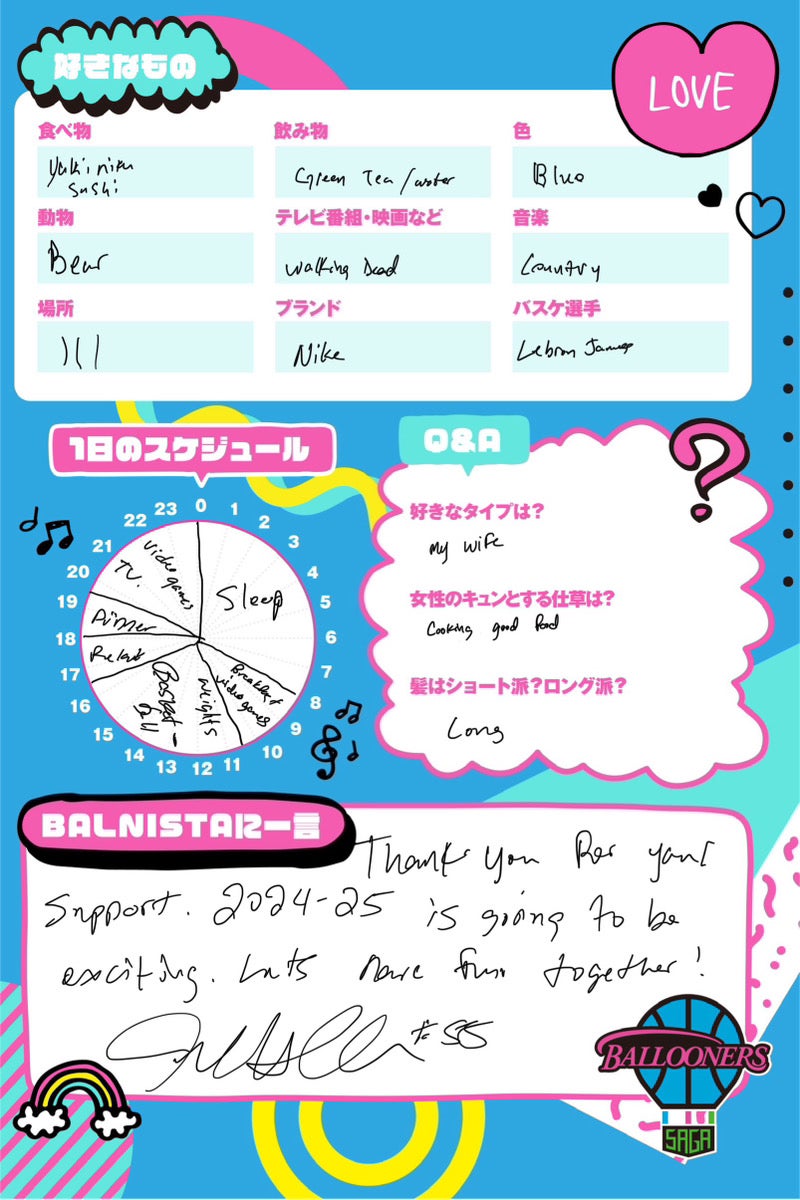 好きなもの
LOVE
食べ物
飲み物
色
yukiniku
sushi
Green Tea/water
Blue
動物
テレビ番組・映画など
音楽
Bear
Walking Dead
Country
場所
ブランド
バスケ選手
Nike
Lebron James
1日のスケジュール
Q&A
?
0
1
2
3
4
5
6
7
8
9
10
11
12
13
14
15
16
17
18
19
20
21
22
23
Sleep
Breakfast
video games
weights
Basket-
ball
Relax
Dinner
TV.
video games
好きなタイプは?
my wife
女性のキュンとする仕草は?
Cooking good food
髪はショート派?ロング派?
Long
BALNISTAに一言
Thank you for your
support. 2024-25 is going to be
exciting. Lets have fun together!
#55
BALLOONERS
SAGA